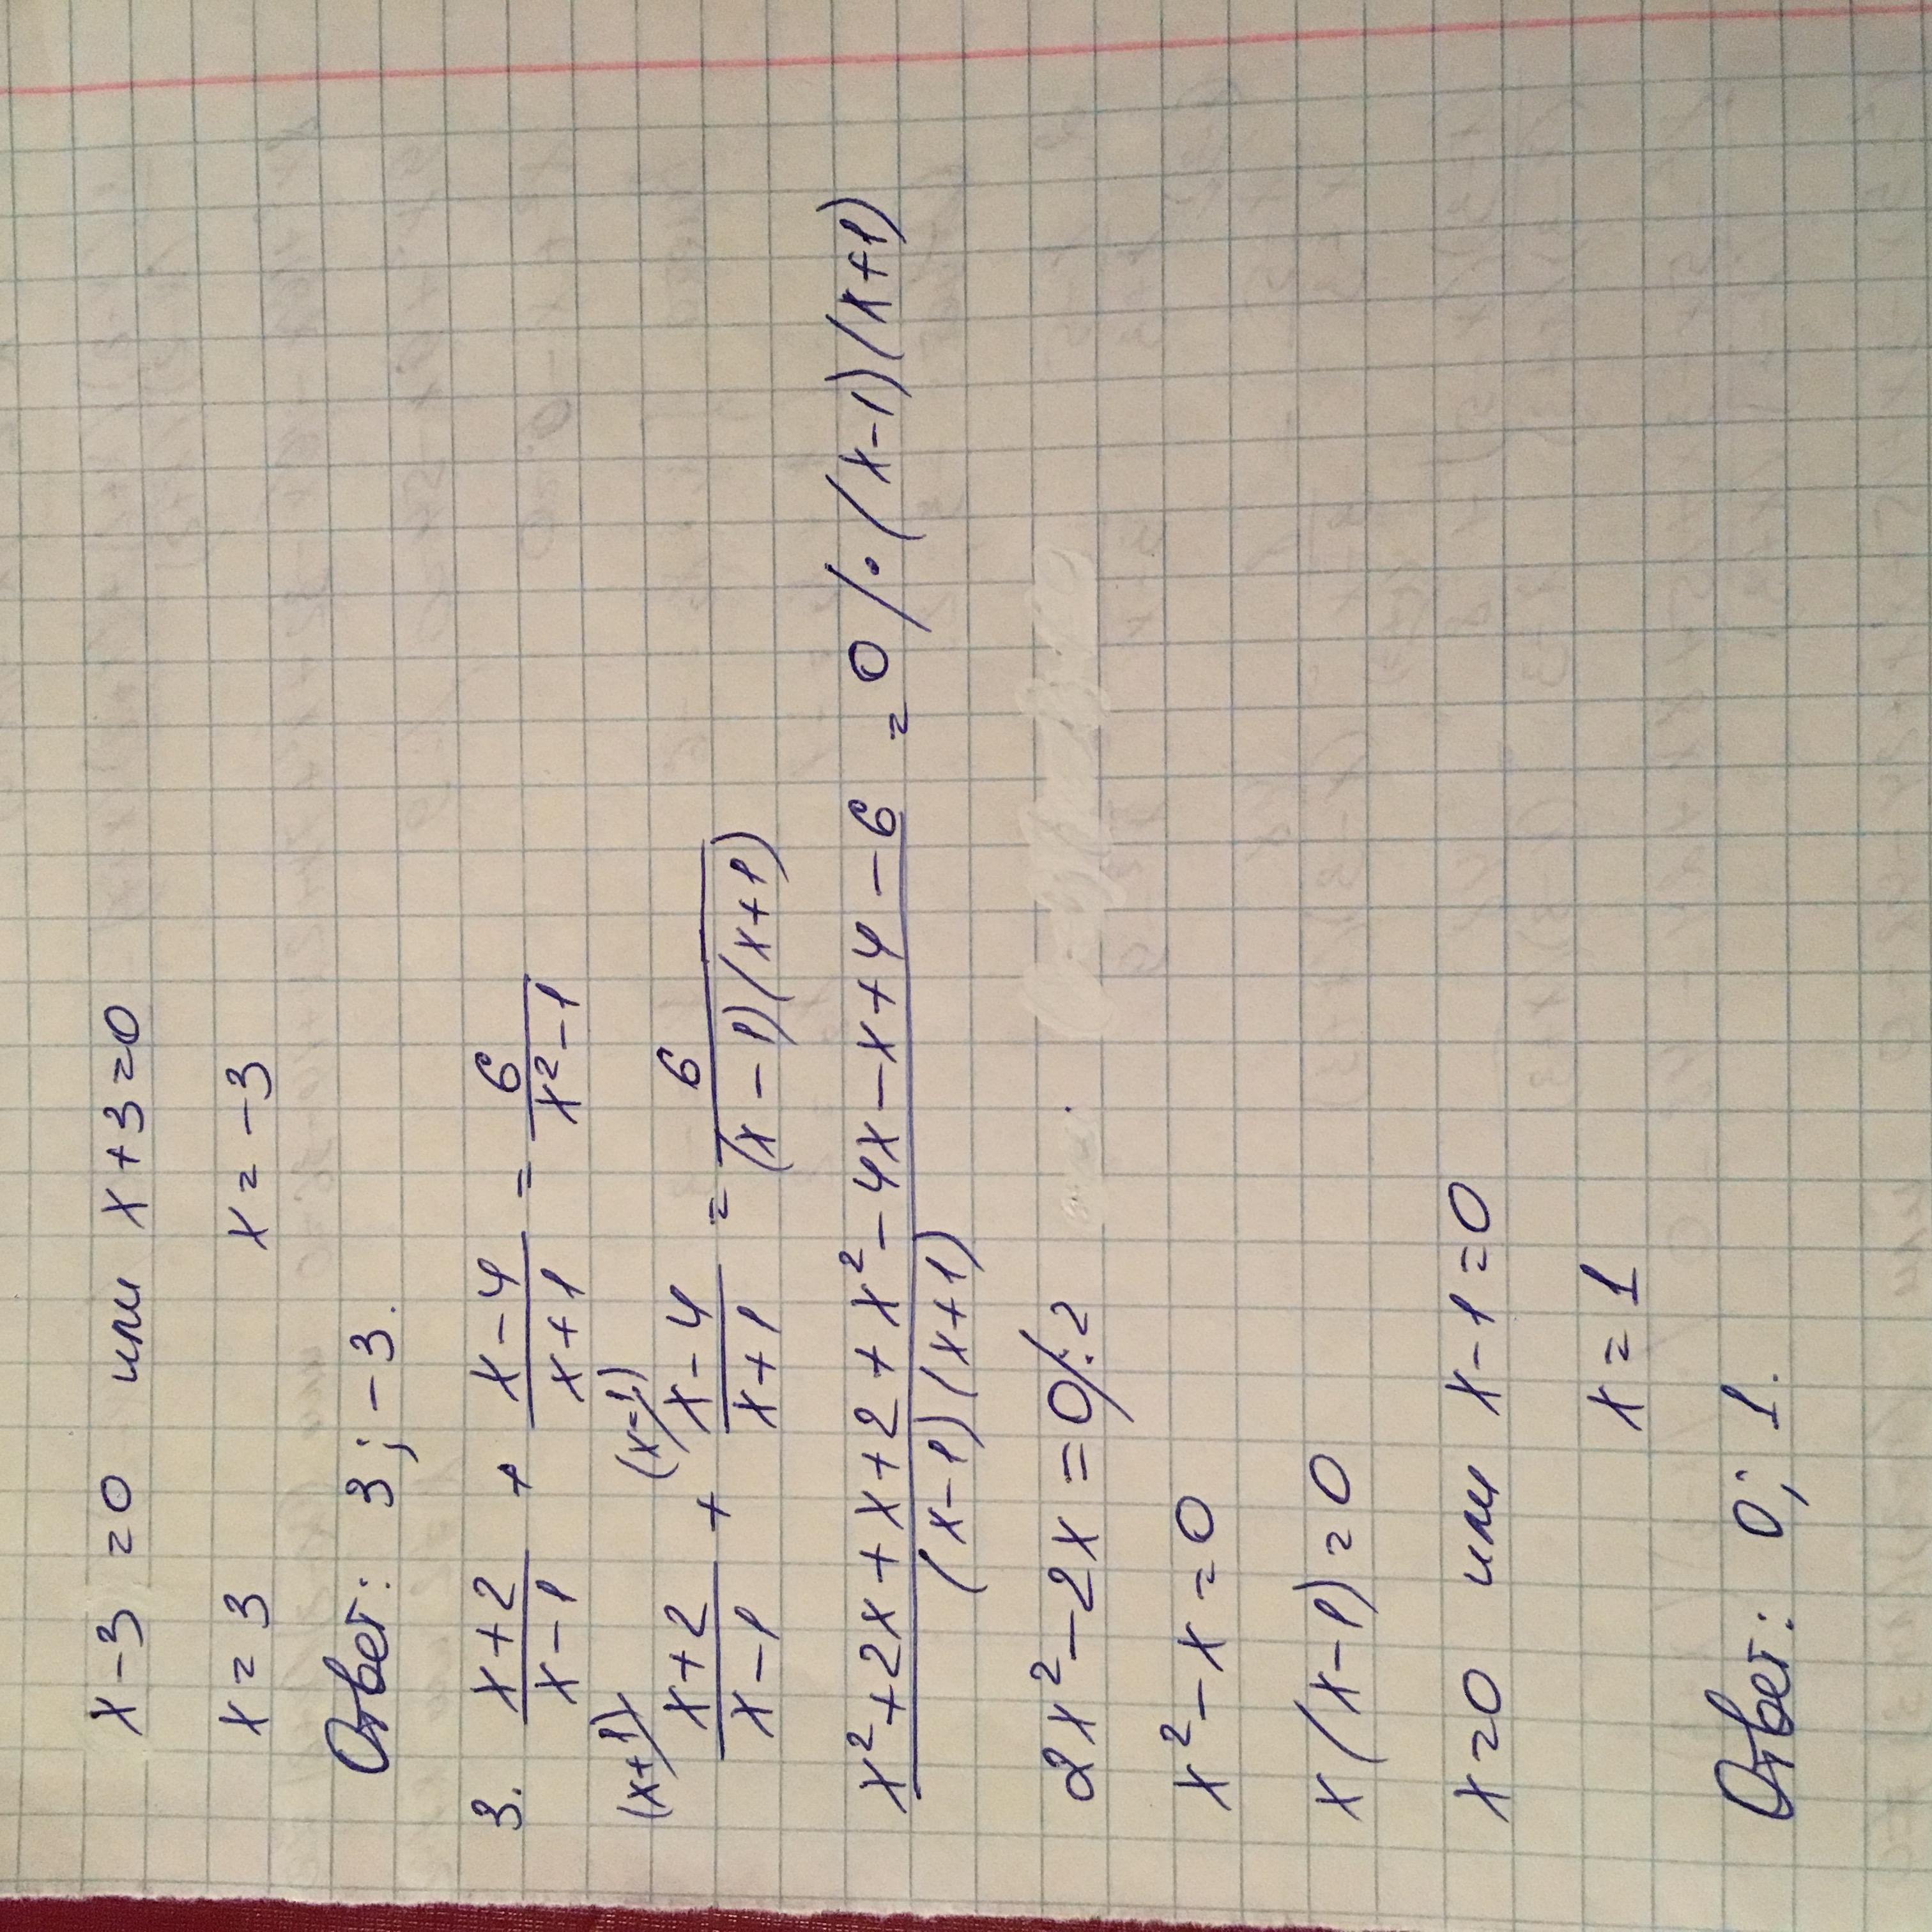 x-3=0 или x+3=0
x=3 x=-3
Ответ: 3; -3.
3. \frac{x+2}{x-1} + \frac{x-4}{x+1} = \frac{6}{x^2-1}
(x+1) (x-1)
\frac{x+2}{x-1} + \frac{x-4}{x+1} = \frac{6}{(x-1)(x+1)}
\frac{x^2+2x+x+2+x^2-4x-x+4-6}{(x-1)(x+1)} = 0 /·(x-1)(x+1)
2x^2-2x=0/:2
x^2-x=0
x(x-1)=0
x=0 или x-1=0
x=1
Ответ: 0; 1.